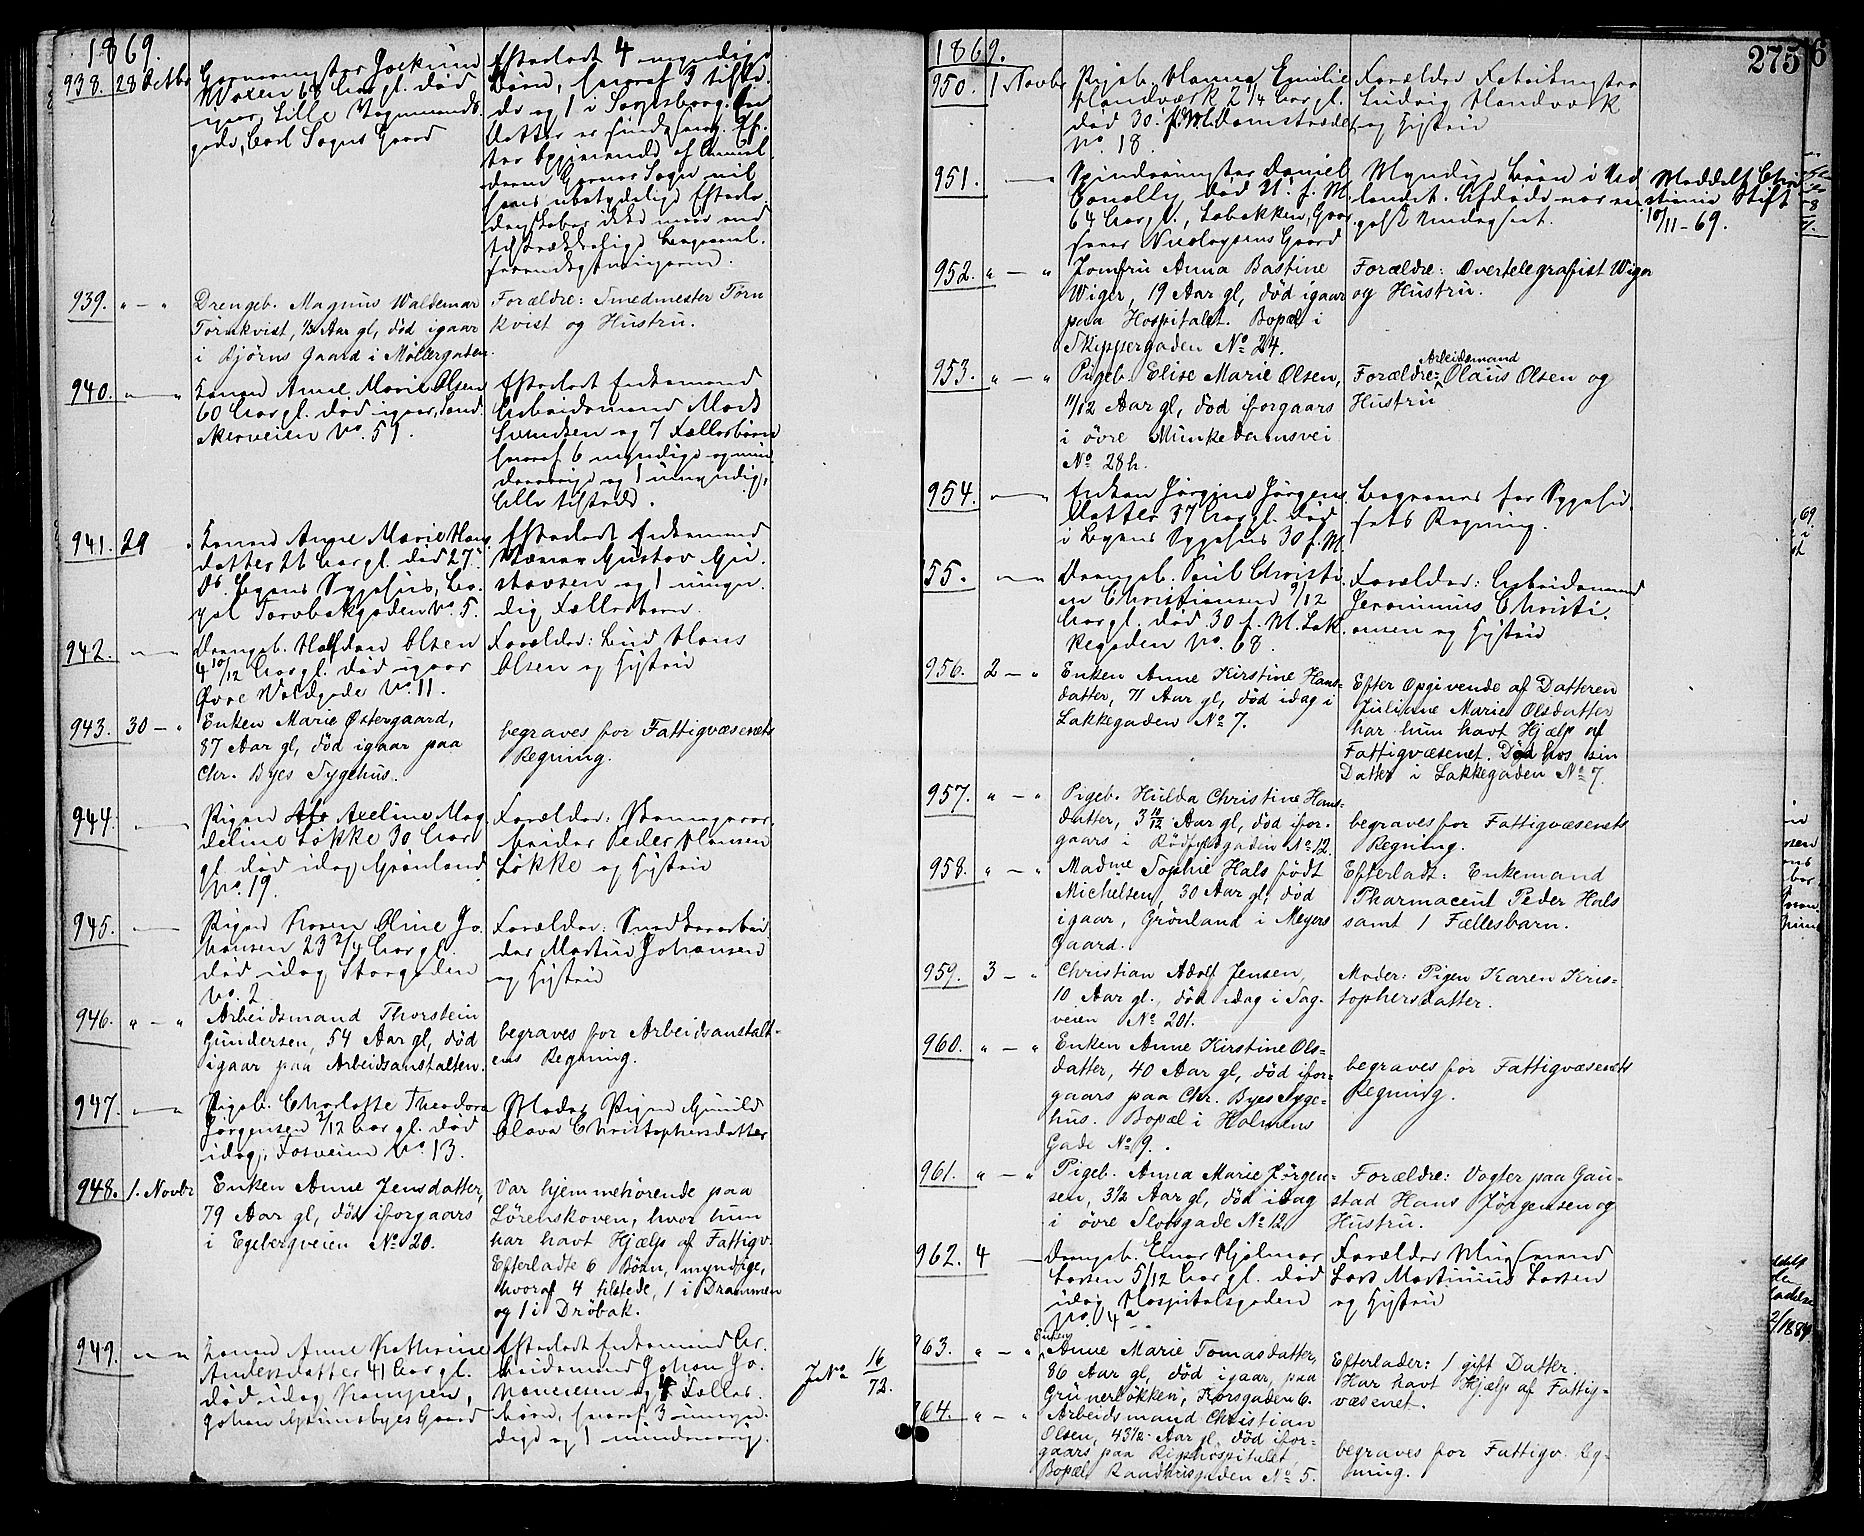 1869.
938. 28 Octbr
Garvermester Jockum
Woxen 68 Aar gl. død
igaar, Lille Vognmands
gade, Carl Sogns Gaard
Efterladt 4 myndige
Børn, hvoraf 3 tilste
de og 1 i Sarpsborg. En
Datter er sindssvag. Ef
ter Opgivende af Anmel
deren Garver Sogn vil
hans ubetydelige Efterla
denskaber ikke mere end
tilstrækkelige Begravel.
939. " — "
Drengeb. Magnus Waldemar
Törnkvist, ½ Aar gl, død igaar
i Björns Gaard i Møllergaden.
Forældre: Smedmester Törn
kvist og Hustru.
940. " — "
Konen Anne Marie Olsen
60 Aar gl. død igaar, Sand
akerveien No. 59.
Efterladt Enkemand
Arbeidsmand Mads
Svendsen og 7 Fællesbørn
hvoraf 6 myndige og min
dreaarige og 1 umyndig,
Alle tilstede.
941. 29 "
Konen Anne Marie Hans
datter Aar gl. død 27
ds. Byens Sygehus, Bo
pæl Torvbakgaden No. 5.
Efterladt Enkemand
Gustav Gu
stavsen og 1 umyn
dig Fællesbarn.
942. " — "
Drengeb. Halfdan Olsen
4 10/12 Aar gl. død igaar
Øvre Voldgade No. 11.
Forældre: Hans
Olsen og Hustru
943. 30 — "
Enken Marie Østergaard,
87 Aar gl, död igaar paa
Chr. Byes Sygehus.
begraves for Fattigvæsenets
Regning.
944. " — "
Pigen Axeline Mag
deline Løkke 30 Aar
gl. død idag Grønland
No. 19.
Forældre:
beider Peder Hansen
Løkke og Hustru
945. " — "
Pigen Karen Oline Jo
hansen 23 2/4 Aar gl.
død idag Storgaden
No. 2.
Forældre: Snedkerarbei
der Martin Johansen
og Hustru
946. " — "
Arbeidsmand Thorstein
Gundersen, 54 Aar gl, död
igaar paa Arbeidsanstalten.
begraves for Arbeidsanstalt-
ens Regning.
947. " — "
Pigeb. Charlotte Theodora
Jørgensen 2/12 Aar gl. død
idag, Fosveien No. 13.
Moder Pigen Gunild
Olava Christophersdatter
948. 1. Novbr
Enken Anne Jensdatter,
79 Aar gl, död iforgaars
i Egebergveien No 20.
Var hjemmehörende paa
Lörenskoven, hvor hun
har havt Hjælp af Fattigv.
Efterladte 6 Börn, myndige,
hvoraf 4 tilstede, 1 i Drammen
og 1 i Dröbak.
949. " — "
Konen Anne Kathrine
Andersdatter 41 Aar gl.
død idag Kampen,
Johan Gaard
Efterladt Enkemand Ar
beidsmand Johan Jo
hannesen og 4 Fælles
børn, hvoraf 3 umyn
dige og 1 mindreaarig.
J No 16/72.
1869.
275
950. 1 Novbr
Pigeb. Hanna Emilie
Handværk 2 1/4 Aar gl.
død 30. f. M. Damstrædet
No. 18.
Forældre Fabrikmester
Ludvig Handværk
og Hustru
951. " — "
Spindemester Daniel
Conolly død 21. f. M.
64 Aar gl., Sobakken, Gaar
Nicolaysens Gaard
Myndige Børn i Ud
landet. Afdøde var en
gelsk Undersaat.
Meddelt Chri
stiania Stift
10/11 - 69.
952. " — "
Jomfru Anna Bastine
Wiger, 19 Aar gl, död igaar
paa Hospitalet. Bopæl i
Skippergaden No 24.
Forældre: Overtelegrafist Wiger
og Hustru.
953. " — "
Pigeb. Elise Marie Olsen,
11/12 Aar gl, död iforgaars
i övre Munkedamsvei
No 28 h.
Forældre: Arbeidsmand Olaus Olsen og
Hustru
954. " — "
Enken Jørgine Jørgens
datter 37 Aar gl. død
i Byens Sygehus 30 f. M.
Begraves for Sygehu
sets Regning.
55. " — "
Drengeb. Paul Christi
an Christiansen 9/12
Aar gl. død 30 f. M. Lak
kegaden No. 68.
Forældre: Arbeidsmand
Jeronimus Christi
ansen og Hustru
956. 2 — "
Enken Anne Kirstine Hans-
datter, 71 Aar gl, död idag i
Lakkegaden No 7.
Efter Opgivende af Datteren
Juliane Marie Olsdatter
har hun havt Hjælp af
Fattigvæsenet. Död hos sin
Datter i Lakkegaden No 7
957. " — "
Pigeb. Hulda Christine Hans-
datter, 3 10/12 Aar gl, död ifor-
gaars i Rödfyldgaden No 12.
begraves for Fattigvæsenets
Regning.
958. " — "
Madme Sophie Hals født
Michelsen, 30 Aar gl, död
igaar, Grönland i Meyers
Gaard.
Efterladt: Enkemand
Pharmaceut Peder Hals
samt 1 Fællesbarn.
959. 3 — "
Christian Adolf Jensen,
10 Aar gl., död idag i Sag-
veien No 201.
Moder: Pigen Karen Kris-
tophersdatter.
960. " — "
Enken Anne Kirstine Ols-
datter, 40 Aar gl, död ifor-
gaars paa Chr. Byes Syge-
hus. Bopæl i Holmens
Gade No 9.
begraves for Fattigvæsenets
Regning.
961. " — "
Pigeb. Anna Marie Jörgen-
sen, 3½ Aar gl, död idag
i övre Slotsgade No 12
Forældre: Vogter paa Gau-
stad Hans Jörgensen og
Hustru.
962. 4 —
Drengeb. Einar Hjalmar
Larsen 5/12 Aar gl. død
idag Hospitalsgaden
No. 4a
Forældre Murmand
Lars Martinius Larsen
og Hustru
963. " — "
Enken
Anne Marie Tomasdatter,
86 Aar gl, död igaar, paa
Grünerlökken, Korsgaden 6.
Efterlader: 1 gift Datter
Har havt Hjælp af Fattig-
væsenet.
964. " — "
Arbeidsmand Christian
Olsen, 43½ Aar gl, död ifor-
gaars paa Rigshospitalet,
Bopæl Raadhusgaden No 5.
begraves for Fattigv. Reg-
ning.